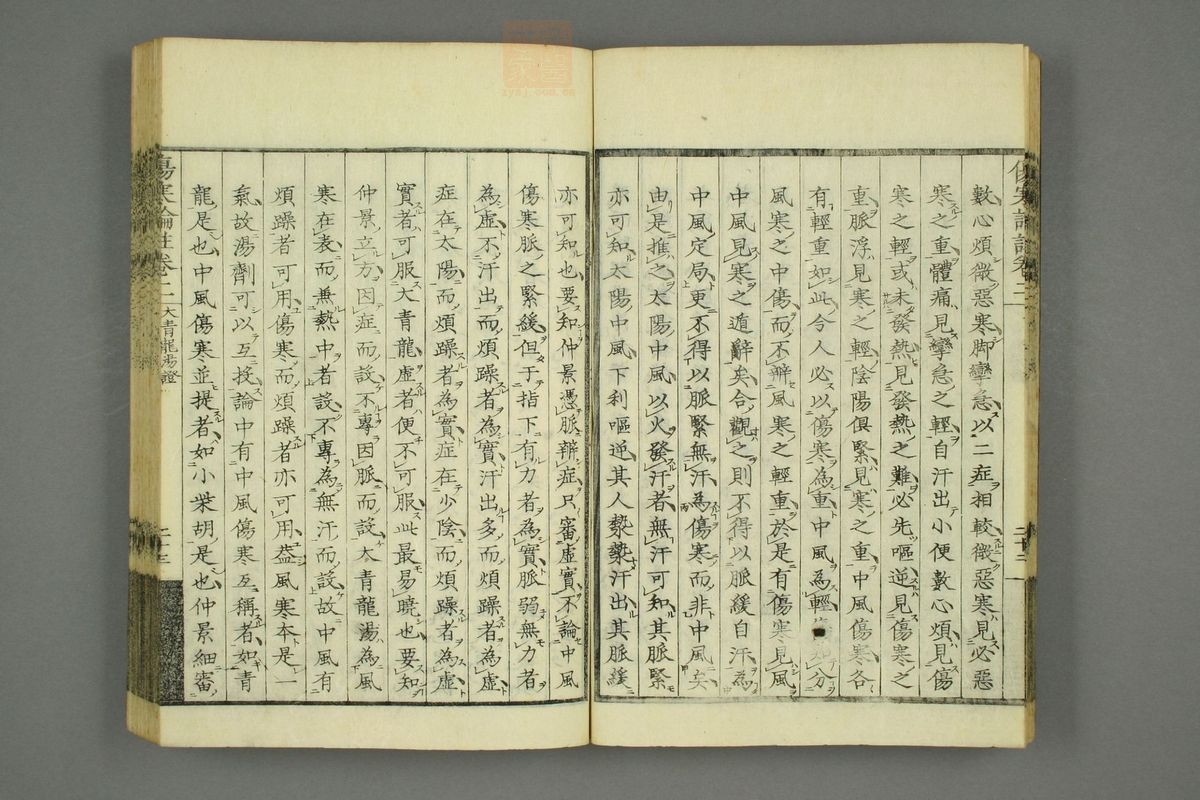 數心煩微惡寒脚攣急以二症相較微惡寒見必惡
寒之重體痛見攣急之輕自汗出小便數心煩見傷
寒之輕或未發熱見發熱之難必先嘔逆見傷寒之
重脈浮見寒之輕陰陽俱緊見寒之重中風傷寒各
有輕重如此今人必以傷寒為重中風為輕分
風寒之中傷而不辨風寒之輕重於是有傷寒見風
中風見寒之遁辭矣合觀之則不得以脈緩自汗為
中風定局更不得以脈緊無汗為傷寒而非中風矣
由是推之太陽中風以火發汗者無汗可知其脈緊
亦可知太陽中風下利嘔逆其人漐漐汗出其脈緩
亦可知也要知仲景憑脈辨症只審虛實不論中風
傷寒脈之緊緩但于指下有力者為實脈弱無力者
為虛不汗出而煩躁者為實汗出多而煩躁者為虛
症在太陽而煩躁者為實症在少陰而煩躁者為虛
實者可服大青龍虛者便不可服此最易曉也要知
仲景立方因症而設不專因脈而設大青龍湯為風
寒在表而兼熱中者設不專為無汗而設故中風有
煩躁者可用傷寒而煩躁者亦可用蓋風寒本是一
氣故湯劑可以互投論中有中風傷寒互稱者如青
龍是也中風傷寒並提者如小柴胡是也仲景細審
傷寒論註卷二 大青龍湯證
zysj.com.cn